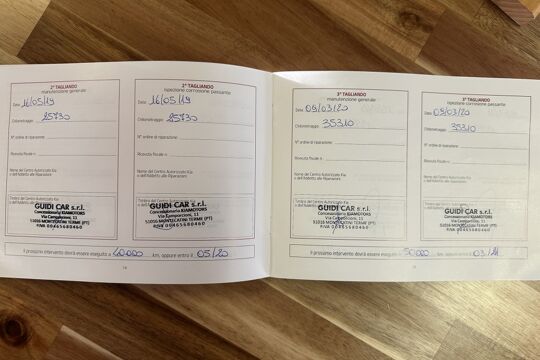 2° TAGLIANDO
manutenzione generale
Data: 16/05/19
Chilometraggio: 25730
N° ordine di riparazione:
Ricevuta fiscale n.:
Nome del Centro Autorizzato Kia
e dell'Addetto alle Riparazioni:
Timbro del Centro Autorizzato Kia
GUIDI CAR s.r.l.
Concessionaria KIAMOTORS
Via Camporcioni, 11
51016 MONTECATINI TERME (PT)
P.IVA 00465680460
2° TAGLIANDO
ispezione corrosione passante
Data: 16/05/19
Chilometraggio: 25730
N° ordine di riparazione:
Ricevuta fiscale n.:
Nome del Centro Autorizzato Kia
e dell'Addetto alle Riparazioni:
Timbro del Centro Autorizzato Kia
GUIDI CAR s.r.l.
Concessionaria KIAMOTORS
Via Camporcioni, 11
51016 MONTECATINI TERME (PT)
P.IVA 00465680460
Il prossimo intervento dovrà essere eseguito a 40.000 km, oppure entro il 05/20
3° TAGLIANDO
manutenzione generale
Data: 09/03/20
Chilometraggio: 35310
N° ordine di riparazione:
Ricevuta fiscale n.:
Nome del Centro Autorizzato Kia
e dell'Addetto alle Riparazioni:
Timbro del Centro Autorizzato Kia
GUIDI CAR s.r.l.
Concessionaria KIAMOTORS
Via Camporcioni, 11
51016 MONTECATINI TERME (PT)
P.IVA 00465680460
3° TAGLIANDO
ispezione corrosione passante
Data: 09/03/20
Chilometraggio: 35310
N° ordine di riparazione:
Ricevuta fiscale n.:
Nome del Centro Autorizzato Kia
e dell'Addetto alle Riparazioni:
Timbro del Centro Autorizzato Kia
GUIDI CAR s.r.l.
Concessionaria KIAMOTORS
Via Camporcioni, 11
51016 MONTECATINI TERME (PT)
P.IVA 00465680460
Il prossimo intervento dovrà essere eseguito a 50.000 km, oppure entro il 03/21